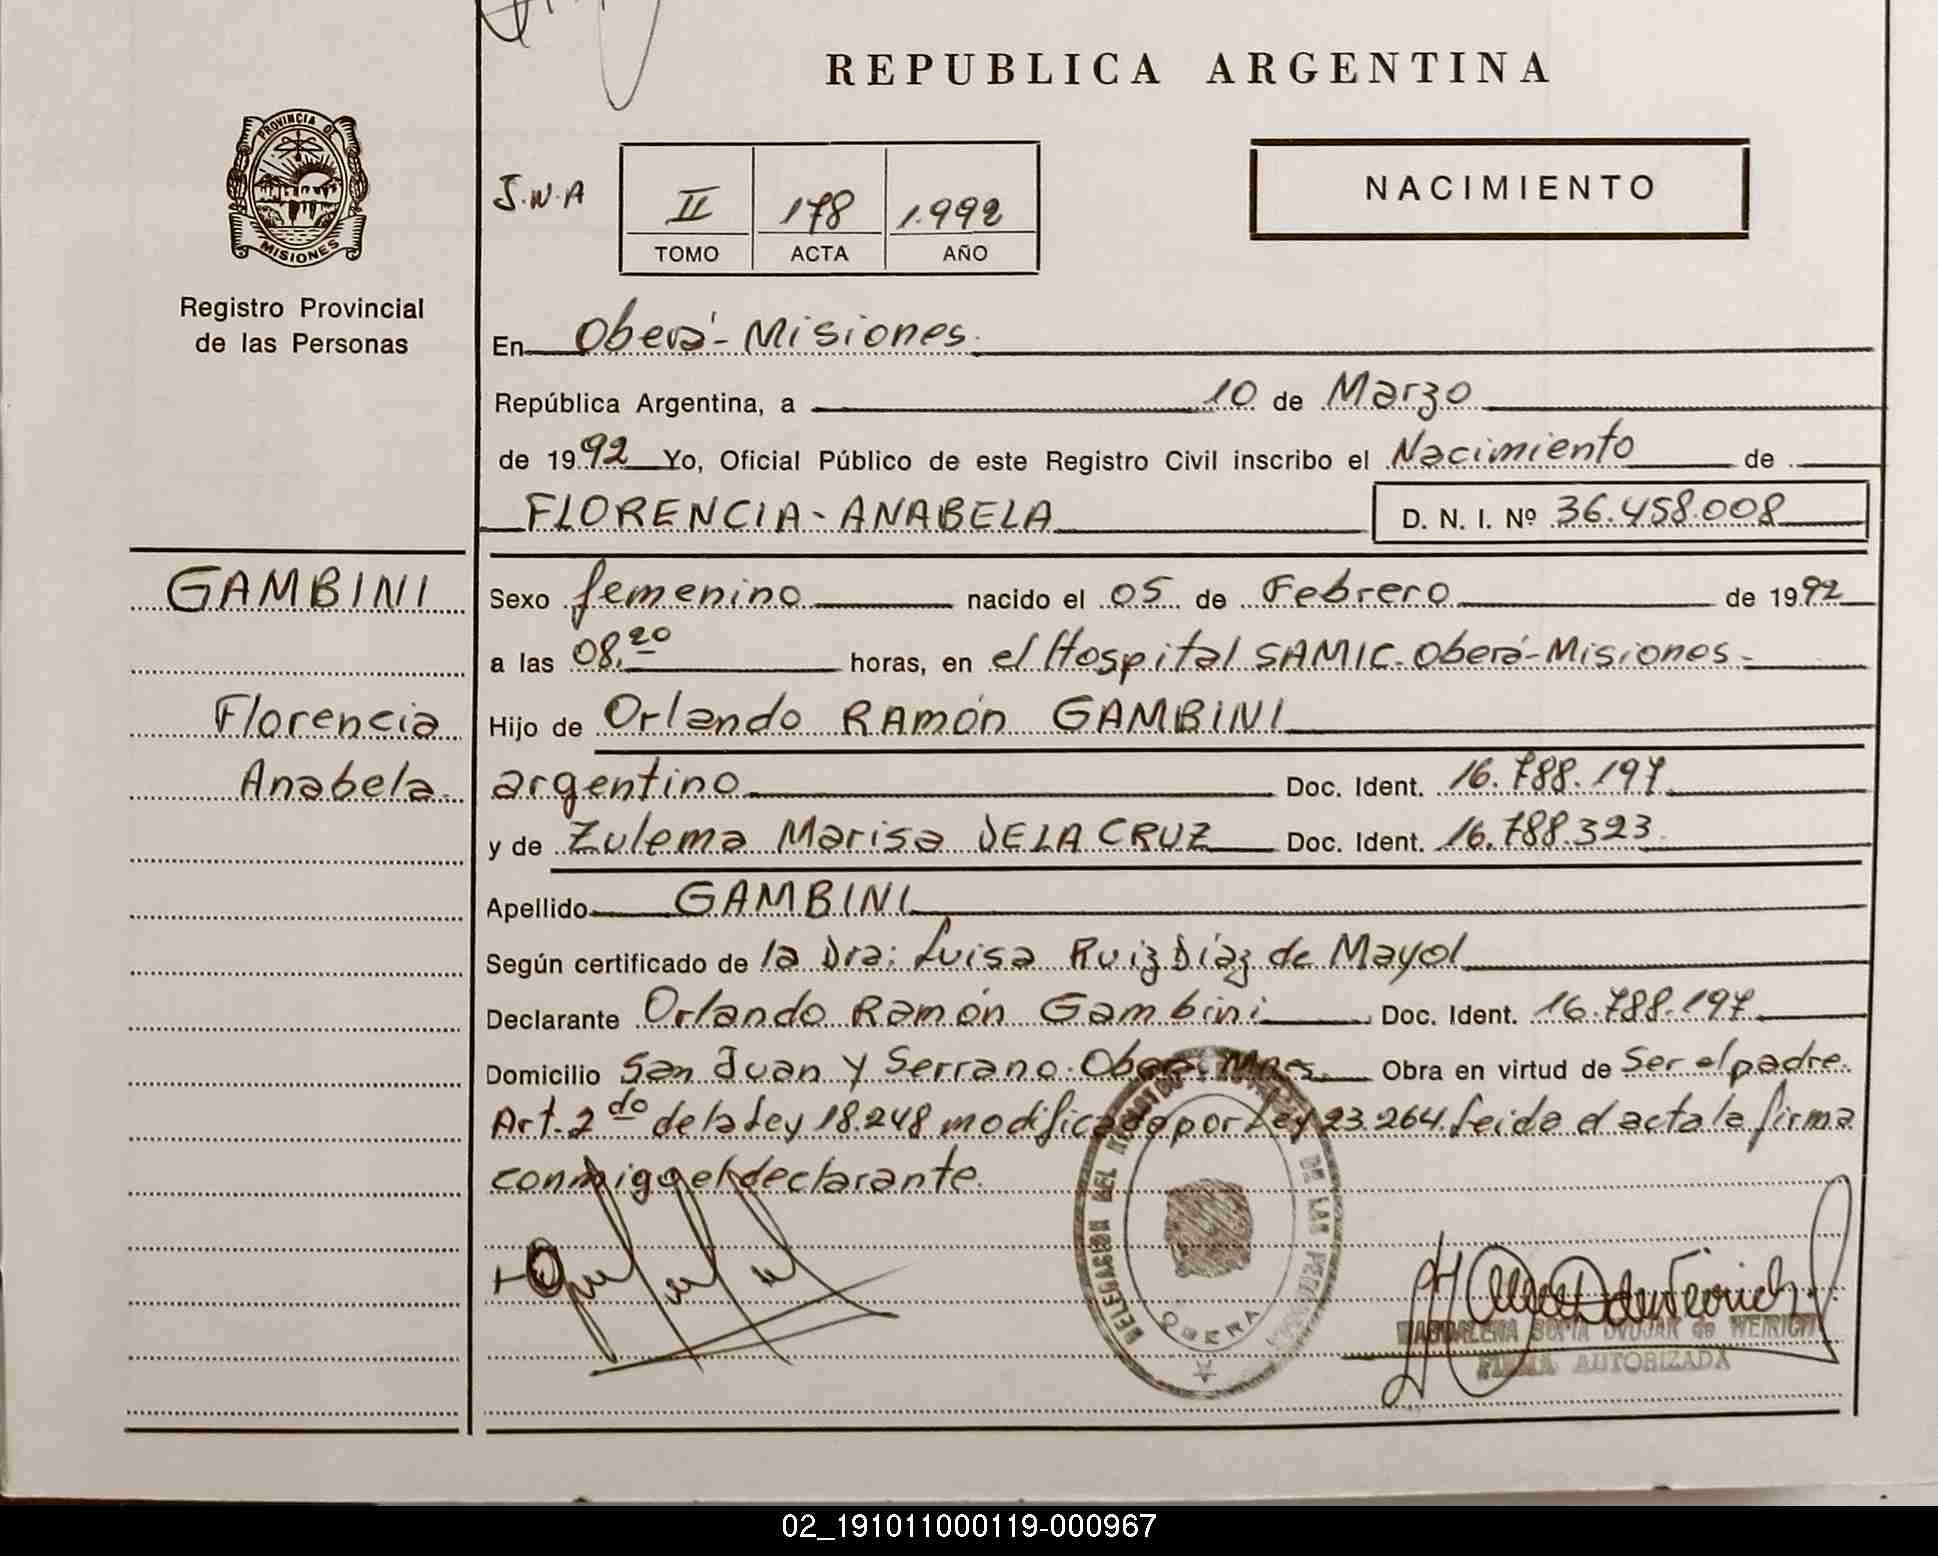 REPUBLICA ARGENTINA
PROVINCIA DE
MISIONES
Registro Provincial
de las Personas
J.N.A
II 178 1.992
TOMO ACTA AÑO
NACIMIENTO
En Oberá - Misiones.
República Argentina, a 10 de Marzo
de 1992 Yo, Oficial Público de este Registro Civil inscribo el Nacimiento de
FLORENCIA - ANABELA D. N. I. Nº 36.458.008
GAMBINI
Florencia
Anabela.
Sexo femenino nacido el 05 de Febrero de 1992
a las 08.20 horas, en el Hospital SAMIC. Oberá - Misiones -
Hijo de Orlando RAMÓN GAMBINI
argentino Doc. Ident. 16.788.197
y de Zulema Marisa DE LA CRUZ Doc. Ident. 16.788.323.
Apellido GAMBINI
Según certificado de la Dra: Luisa Ruiz Díaz de Mayol
Declarante Orlando Ramón Gambini Doc. Ident. 16.788.197
Domicilio San Juan y Serrano. Oberá. Mnes. Obra en virtud de Ser el padre.
Art. 2do de la Ley 18.248 modificado por Ley 23.264. Leida el acta la firma
conmigo el declarante.
DELEGACION DEL REGISTRO DE LAS PERSONAS
OBERA
MAGDALENA SOFIA DVOJAK de WEIRICH
FIRMA AUTORIZADA
02_191011000119-000967